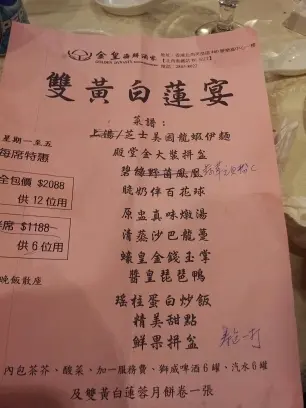 金皇海鮮酒家
雙黃白蓮宴
菜譜:
星期一至五
每席特惠
上湯/芝士美國龍蝦伊麵
殿堂金大裝拼盆
全包價 $2088
供12位用
碧綠野菌鳳凰
脆奶伴百花球
原盅真味燉湯
席 $1188
供6位用
清蒸沙巴龍躉
蠔皇金錢玉掌
醬皇琵琶鴨
晚飯散座
瑤柱蛋白炒飯
精美甜點
鮮果拼盆
內包茶芥、酸菜、加一服務費、獅威啤酒6罐、汽水6罐
及雙黃白蓮蓉月餅卷一張